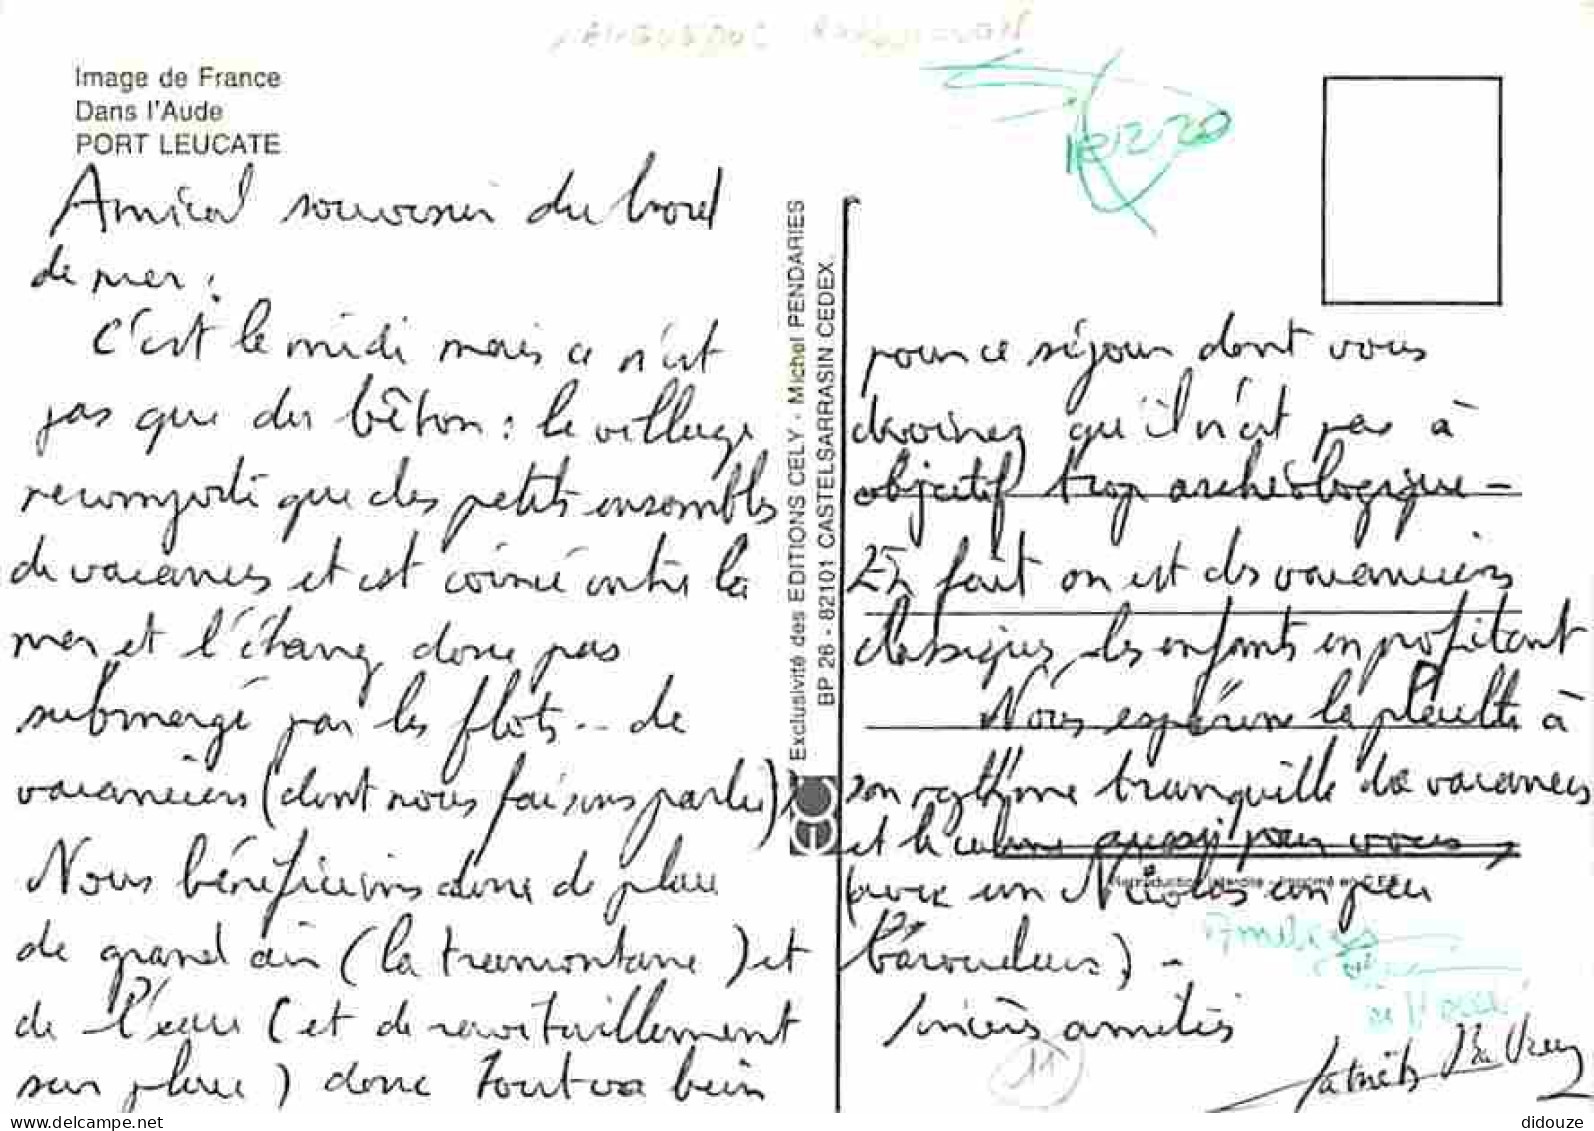 Image de France
Dans l'Aude
PORT LEUCATE
Amical souvenir du bord
de mer :
C'est le midi mais ce n'est
pas que du béton : le village
ne comporte que des petits ensembles
de vacances et est coincé entre la
mer et l'étang donc pas
submergé par les flots... de
vacanciers (dont nous faisons partie)
Nous bénéficions donc de place
de grand air (la tramontane) et
de l'eau (et de ravitaillement
sur place) donc tout va bien
Exclusivité des EDITIONS CELY - Michel PENDARIES
BP 26 - 82101 CASTELSARRASIN CEDEX.
10-12-20
pour ce séjour dont vous
devinez qu'il n'est pas à
objectif trop archéologique -
En fait on est des vacanciers
classiques les enfants en profitant
Nous espérons la pleine à
son rythme tranquille de vacances
et le calme aussi pour vous
(avec un Nicolas un peu
baroudeur) -
Reproduction interdite - Imprimé en C.E.E.
Sincères amitiés
11
didouze